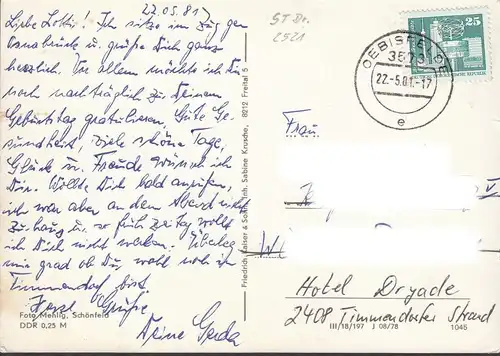 22.05.81
Liebe Lotti! Ich sitze im Zug gen
Osnabrück u. grüße Dich ganz
herzlich. Vor allem möchte ich Dir
noch nachträglich zu Deinem
Geburtstag gratulieren, Gute Ge-
sundheit, viele schöne Tage,
Glück u. Freude wünsch ich
Dir. Wollte Dich bald anrufen,
ich war aber an dem Abend nicht
zu Haus u. so früh zeitig wollt
ich Dich nicht wecken. Überleg
mir grad ob Du, wohl noch in
Timmendorf bist.
Herzl. Grüße
Deine Gerda
Foto Mehlig, Schönfeld
DDR 0,25 M
Friedrich Kaiser & Sohn, Inh. Sabine Krusche, 8212 Freital 5
ST Br.
2521
OEBISFELDE
3573
22.-5.81.-17
e
25
DDR
Frau
Hotel Dryade
2408 Timmendorfer Strand
III/18/197 J 08/78 1045